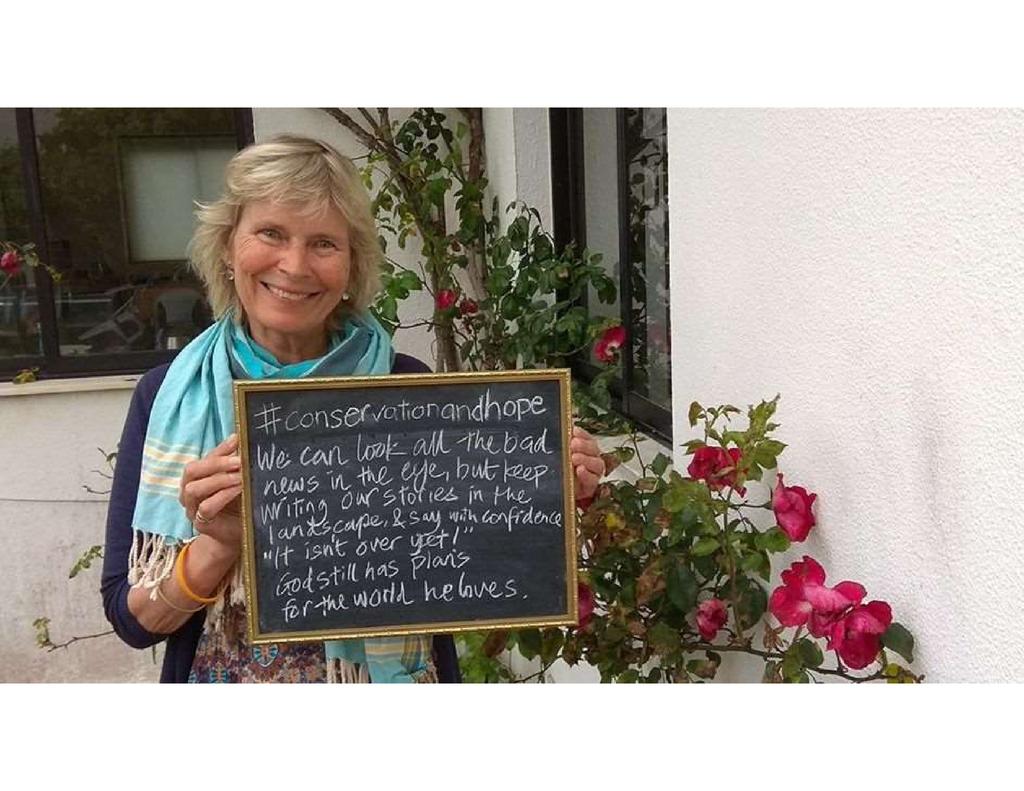 #conservationandhope
We can look all the bad
news in the eye, but keep
writing our stories in the
landscape, & say with confidence
"It isn't over yet!"
God still has plans
for the world he loves.